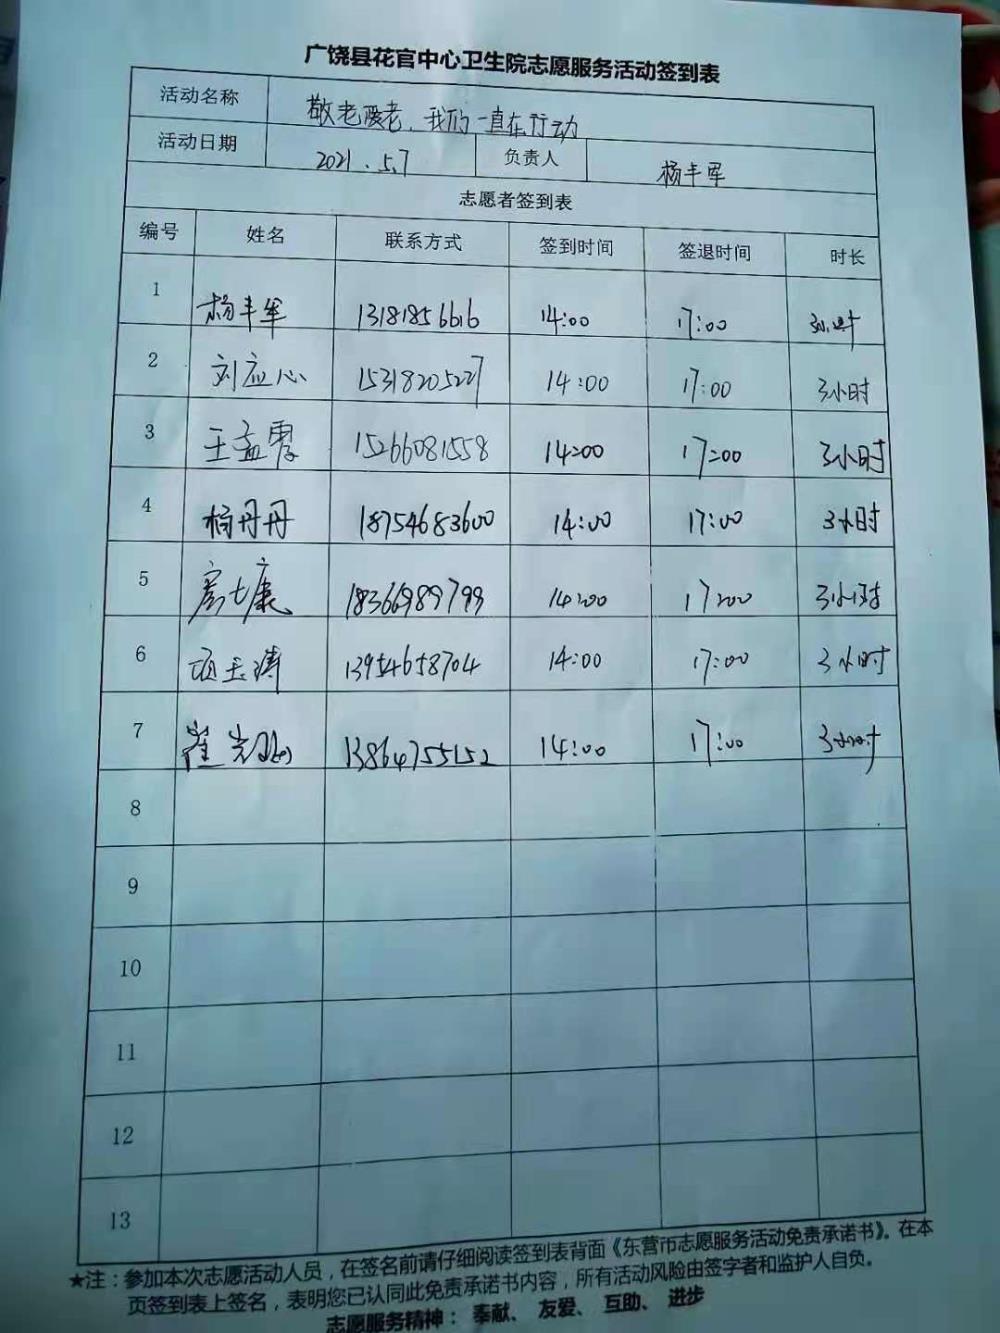 广饶县花官中心卫生院志愿服务活动签到表
活动名称 敬老爱老、我们一直在行动
活动日期 2021.5.7 负责人 杨丰军
志愿者签到表
编号 姓名 联系方式 签到时间 签退时间 时长
1 杨丰军 13181856616 14:00 17:00 3小时
2 刘应心 15318205227 14:00 17:00 3小时
3 王孟霞 15266081558 14:00 17:00 3小时
4 杨丹丹 18754683600 14:00 17:00 3小时
5 18366989799 14:00 17:00 3小时
6 项玉涛 13954658704 14:00 17:00 3小时
7 崔 13864755152 14:00 17:00 3小时
8
9
10
11
12
13
★注：参加本次志愿活动人员，在签名前请仔细阅读签到表背面《东营市志愿服务活动免责承诺书》。在本
页签到表上签名，表明您已认同此免责承诺书内容，所有活动风险由签字者和监护人自负。
志愿服务精神：奉献、友爱、互助、进步